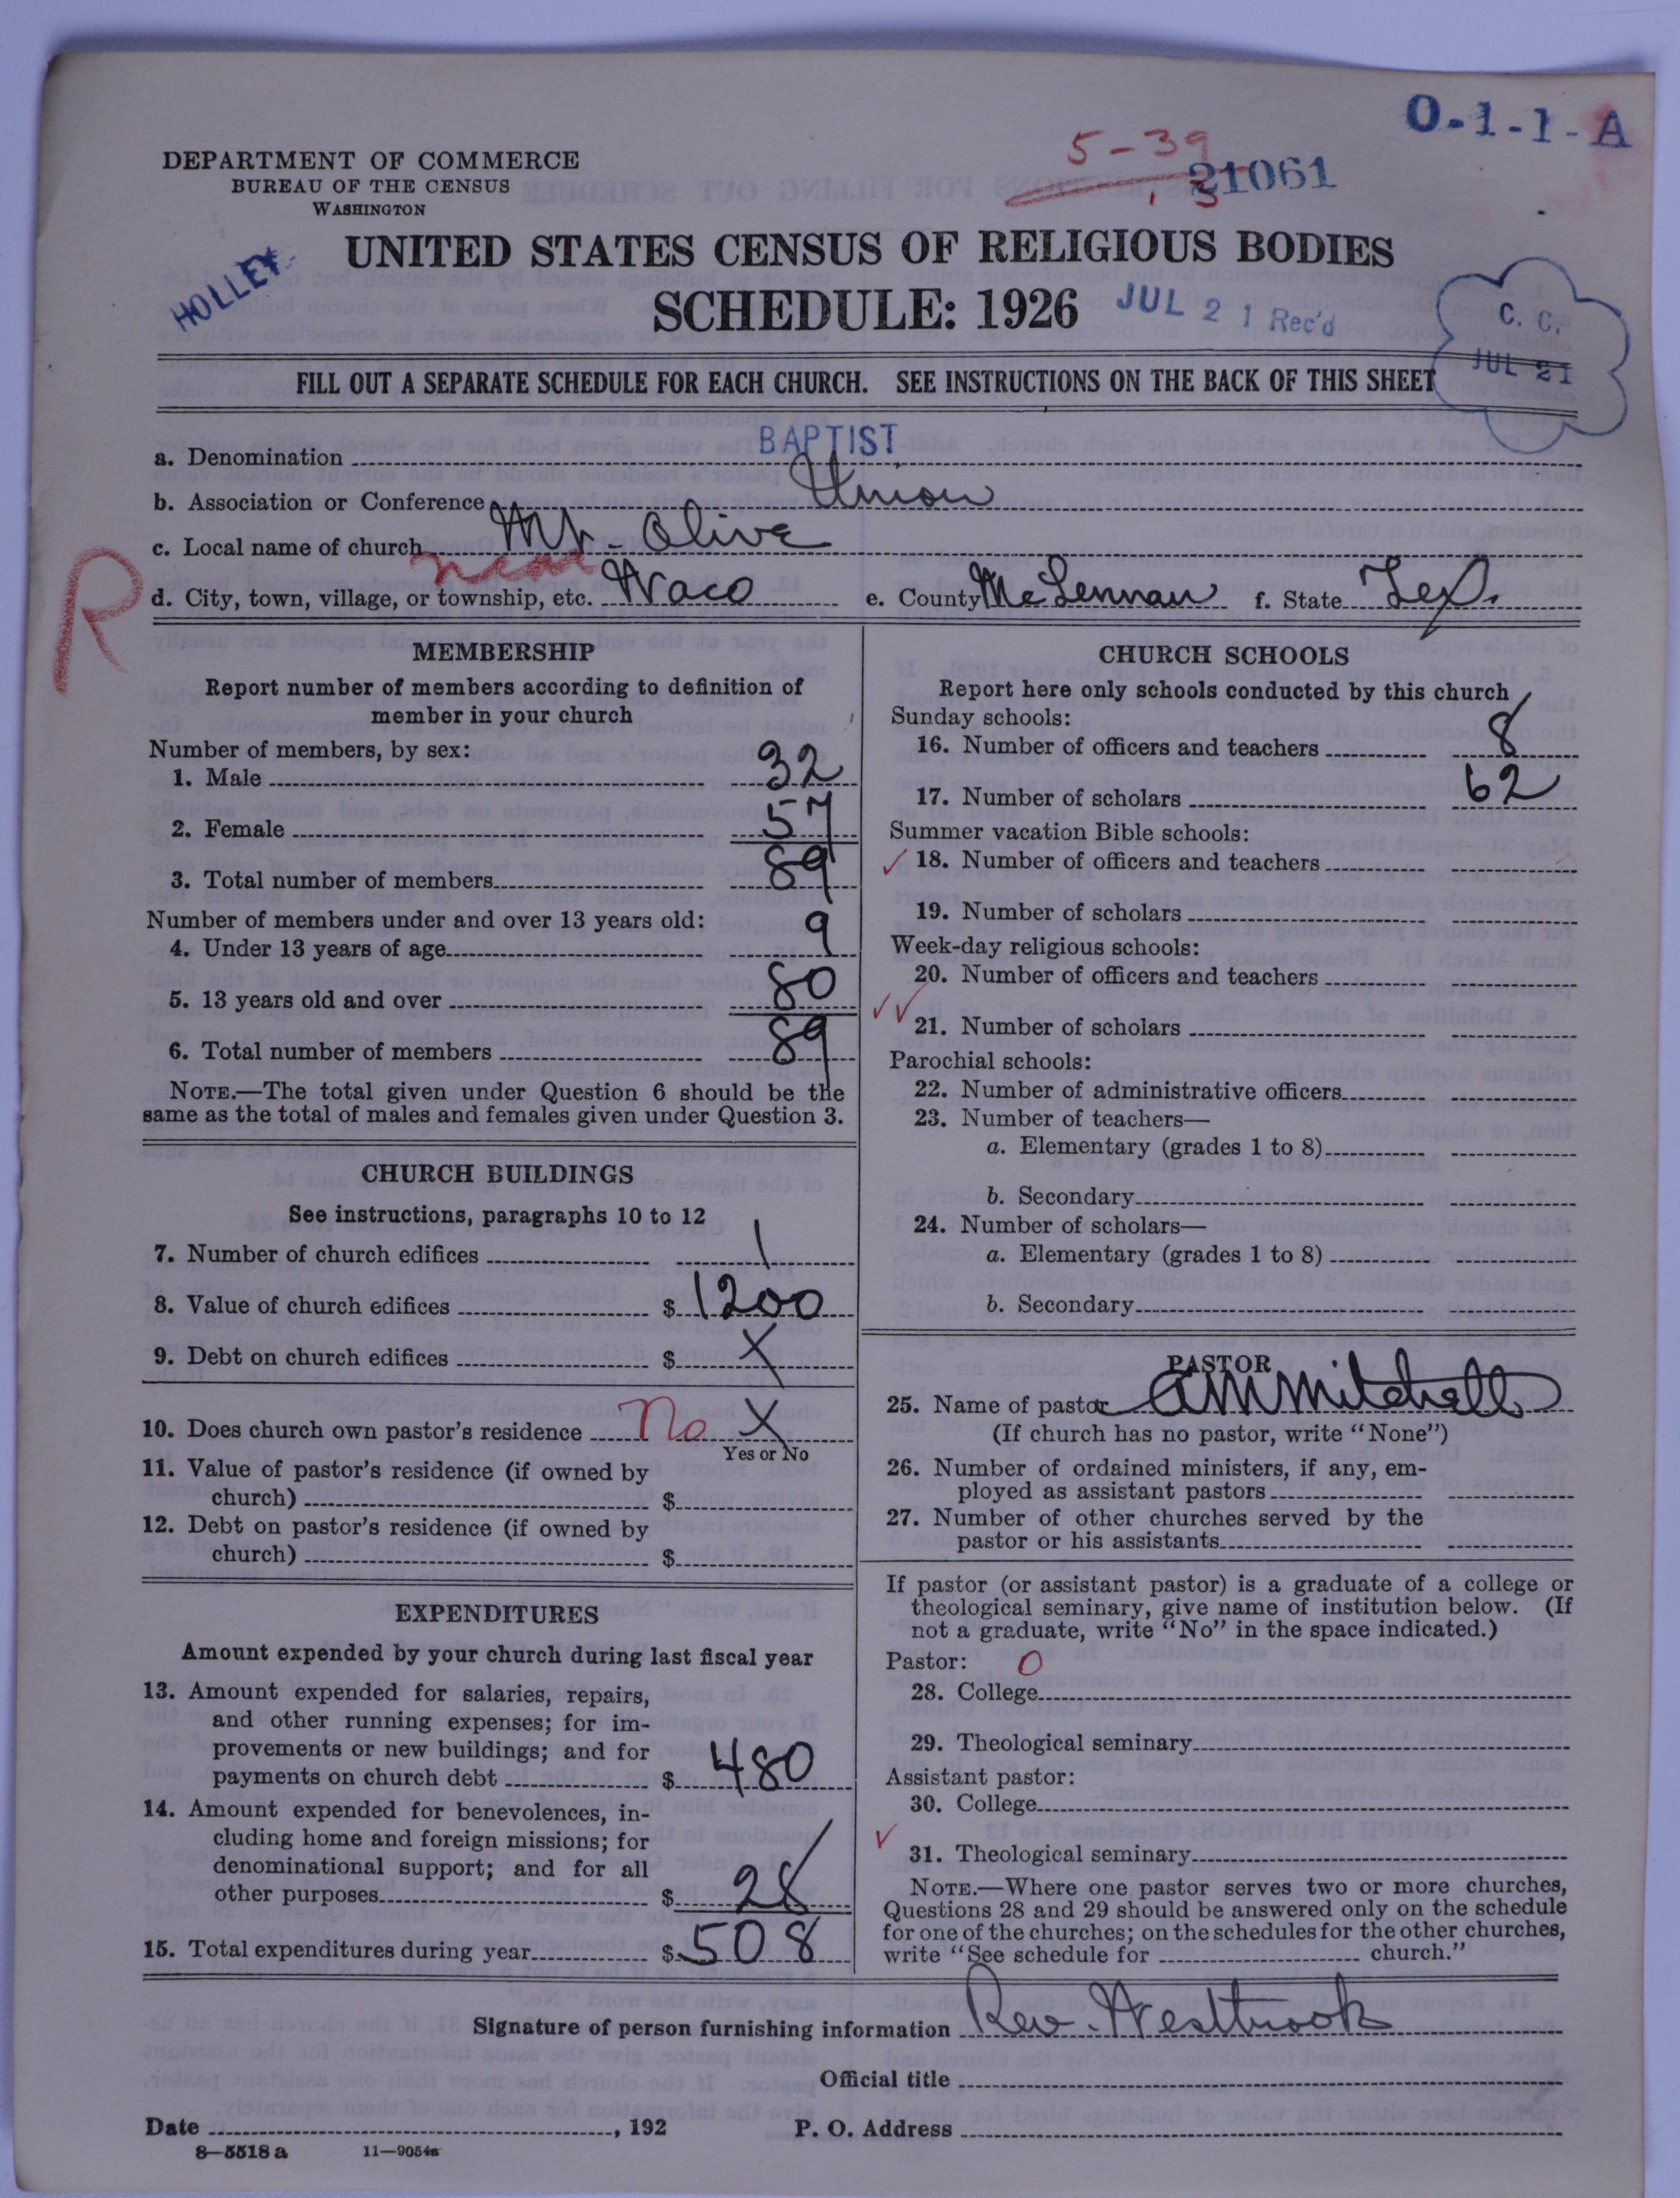 O-1-1-A
5-39
21061
3
DEPARTMENT OF COMMERCE
BUREAU OF THE CENSUS
WASHINGTON
HOLLEY
UNITED STATES CENSUS OF RELIGIOUS BODIES
SCHEDULE: 1926
JUL 21 Rec'd
C. C.
JUL 21
FILL OUT A SEPARATE SCHEDULE FOR EACH CHURCH. SEE INSTRUCTIONS ON THE BACK OF THIS SHEET
a. Denomination BAPTIST
b. Association or Conference Union
c. Local name of church Mt. Olive
R
near
d. City, town, village, or township, etc. Waco e. County McLennan f. State Tex.
MEMBERSHIP
Report number of members according to definition of
member in your church
Number of members, by sex:
1. Male 32
2. Female 57
3. Total number of members 89
Number of members under and over 13 years old:
4. Under 13 years of age 9
5. 13 years old and over 80
6. Total number of members 89
NOTE.—The total given under Question 6 should be the
same as the total of males and females given under Question 3.
CHURCH BUILDINGS
See instructions, paragraphs 10 to 12
7. Number of church edifices 1
8. Value of church edifices $ 1200
9. Debt on church edifices $ X
10. Does church own pastor's residence No X
Yes or No
11. Value of pastor's residence (if owned by
church) $
12. Debt on pastor's residence (if owned by
church) $
EXPENDITURES
Amount expended by your church during last fiscal year
13. Amount expended for salaries, repairs,
and other running expenses; for im-
provements or new buildings; and for
payments on church debt $ 480
14. Amount expended for benevolences, in-
cluding home and foreign missions; for
denominational support; and for all
other purposes $ 28
15. Total expenditures during year $ 508
CHURCH SCHOOLS
Report here only schools conducted by this church
Sunday schools:
16. Number of officers and teachers 8
17. Number of scholars 62
Summer vacation Bible schools:
18. Number of officers and teachers
19. Number of scholars
Week-day religious schools:
20. Number of officers and teachers
21. Number of scholars
Parochial schools:
22. Number of administrative officers
23. Number of teachers—
a. Elementary (grades 1 to 8)
b. Secondary
24. Number of scholars—
a. Elementary (grades 1 to 8)
b. Secondary
PASTOR
25. Name of pastor A M Mitchell
(If church has no pastor, write "None")
26. Number of ordained ministers, if any, em-
ployed as assistant pastors
27. Number of other churches served by the
pastor or his assistants
If pastor (or assistant pastor) is a graduate of a college or
theological seminary, give name of institution below. (If
not a graduate, write "No" in the space indicated.)
Pastor: 0
28. College
29. Theological seminary
Assistant pastor:
30. College
31. Theological seminary
NOTE.—Where one pastor serves two or more churches,
Questions 28 and 29 should be answered only on the schedule
for one of the churches; on the schedules for the other churches,
write "See schedule for church."
Signature of person furnishing information Rev. Westbrook
Official title
Date , 192 P. O. Address
8—5518 a 11—9054a